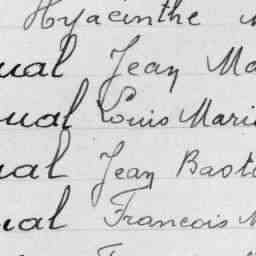 Hyacinthe
ual Jean Ma
ual Louis Mari
ual Jean Bast
ual Francois M